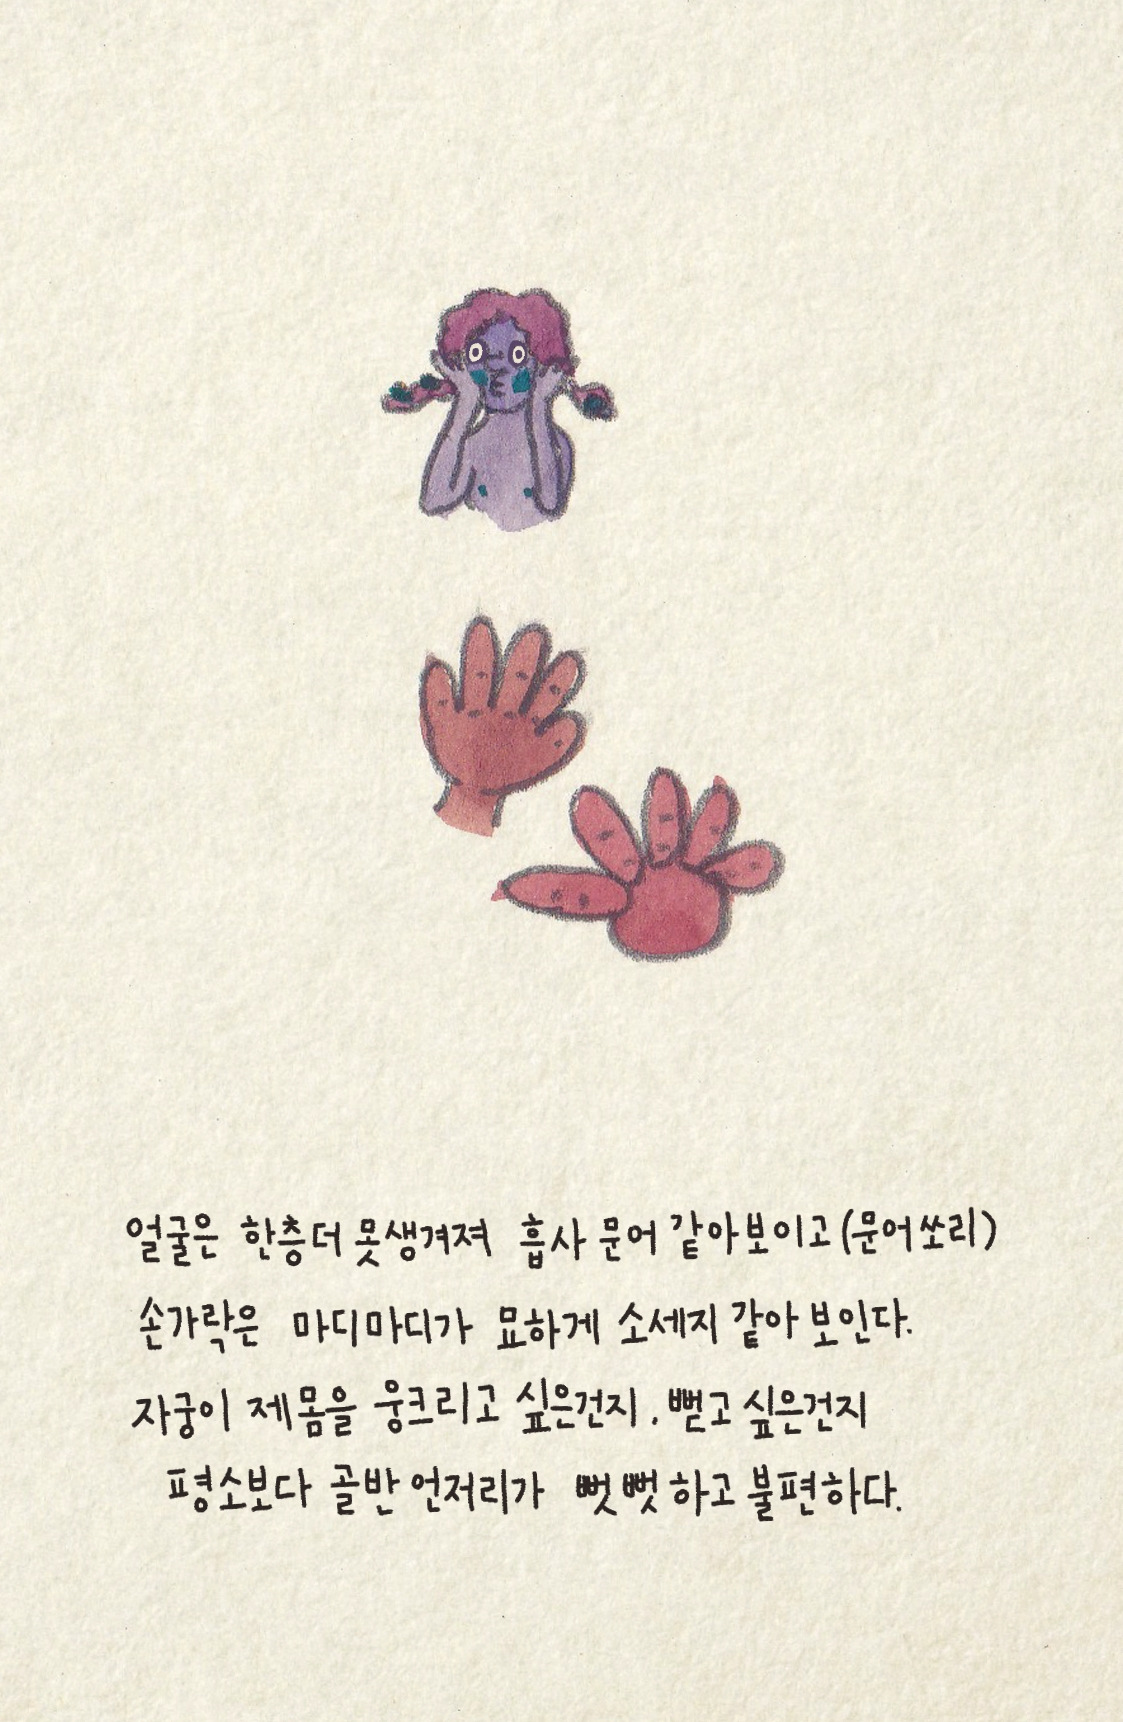 얼굴은 한층더 못생겨져 흡사 문어 같아보이고(문어쏘리)
손가락은 마디마디가 묘하게 소세지 같아 보인다.
자궁이 제몸을 웅크리고 싶은건지, 뻗고 싶은건지
평소보다 골반 언저리가 뻣뻣하고 불편하다.